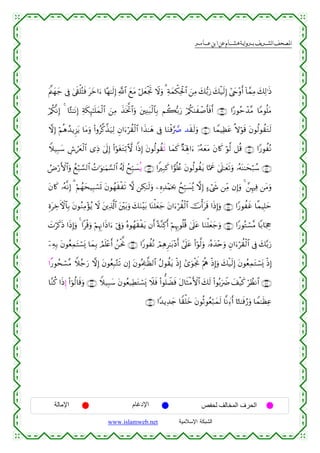 المصحف الشريف برواية هشام عن ابن عامر
ذَٰلِكَ مِمَّا أَوْحَىٰ إِلَيْكَ رَبُّكَ مِنَ ٱلْحِكْمَةِ وَلَا تَجْعَلْ مَعَ ٱللَّهِ إِلَٰهًا ءَاخَرَ فَتُلْقَىٰ فِى جَهَنَّمَ
مَلُومًا مَّدْحُورًا ۝ أَفَأَصْفَىٰكُمْ رَبُّكُم بِٱلْبَنِينَ وَٱتَّخَذَ مِنَ ٱلْمَلَٰٓئِكَةِ إِنَٰثًا إِنَّكُمْ
لَتَقُولُونَ قَوْلًا عَظِيمًا ۝ وَلَقَد صَّرَّفْنَا فِى هَٰذَا ٱلْقُرْءَانِ لِيَذَّكَّرُوا۟ وَمَا يَزِيدُهُمْ إِلَّا
نُفُورًا ۝ قُل لَّوْ كَانَ مَعَهُۥٓ ءَالِهَةٌ كَمَا تَقُولُونَ إِذًا لَّٱبْتَغَوْا۟ إِلَىٰ ذِى ٱلْعَرْشِ سَبِيلًا
۝ سُبْحَٰنَهُۥ وَتَعَٰلَىٰ عَمَّا يَقُولُونَ عُلُوًّا كَبِيرًا ۝ يُسَبِّحُ لَهُ ٱلسَّمَٰوَٰتُ ٱلسَّبْعُ وَٱلْأَرْضُ
وَمَن فِيهِنَّ وَإِن مِّن شَىْءٍ إِلَّا يُسَبِّحُ بِحَمْدِهِۦ وَلَٰكِن لَّا تَفْقَهُونَ تَسْبِيحَهُمْ إِنَّهُۥ كَانَ
حَلِيمًا غَفُورًا ۝ وَإِذَا قَرَأْتَ ٱلْقُرْءَانَ جَعَلْنَا بَيْنَكَ وَبَيْنَ ٱلَّذِينَ لَا يُؤْمِنُونَ بِٱلْءَاخِرَةِ
حِجَابًا مَّسْتُورًا ۝ وَجَعَلْنَا عَلَىٰ قُلُوبِهِمْ أَكِنَّةً أَن يَفْقَهُوهُ وَفِىٓ ءَاذَانِهِمْ وَقْرًا وَإِذَا ذَكَرْتَ
رَبَّكَ فِى ٱلْقُرْءَانِ وَحْدَهُۥ وَلَّوْا۟ عَلَىٰٓ أَدْبَٰرِهِمْ نُفُورًا ۝ نَّحْنُ أَعْلَمُ بِمَا يَسْتَمِعُونَ بِهِۦٓ
إِذْ يَسْتَمِعُونَ إِلَيْكَ وَإِذْ هُمْ نَجْوَىٰٓ إِذْ يَقُولُ ٱلظَّٰلِمُونَ إِن تَتَّبِعُونَ إِلَّا رَجُلًا مَّسْحُورًا
۝ ٱنظُرْ كَيْفَ ضَرَبُوا۟ لَكَ ٱلْأَمْثَالَ فَضَلُّوا۟ فَلَا يَسْتَطِيعُونَ سَبِيلًا ۝ وَقَالُوٓا۟ إِذَا كُنَّا
عِظَٰمًا وَرُفَٰتًا أَءِنَّا لَمَبْعُوثُونَ خَلْقًا جَدِيدًا ۝
الحرف المخالف لحفص الإدغام الإمالة
الشبكة الإسلامية www.islamweb.net